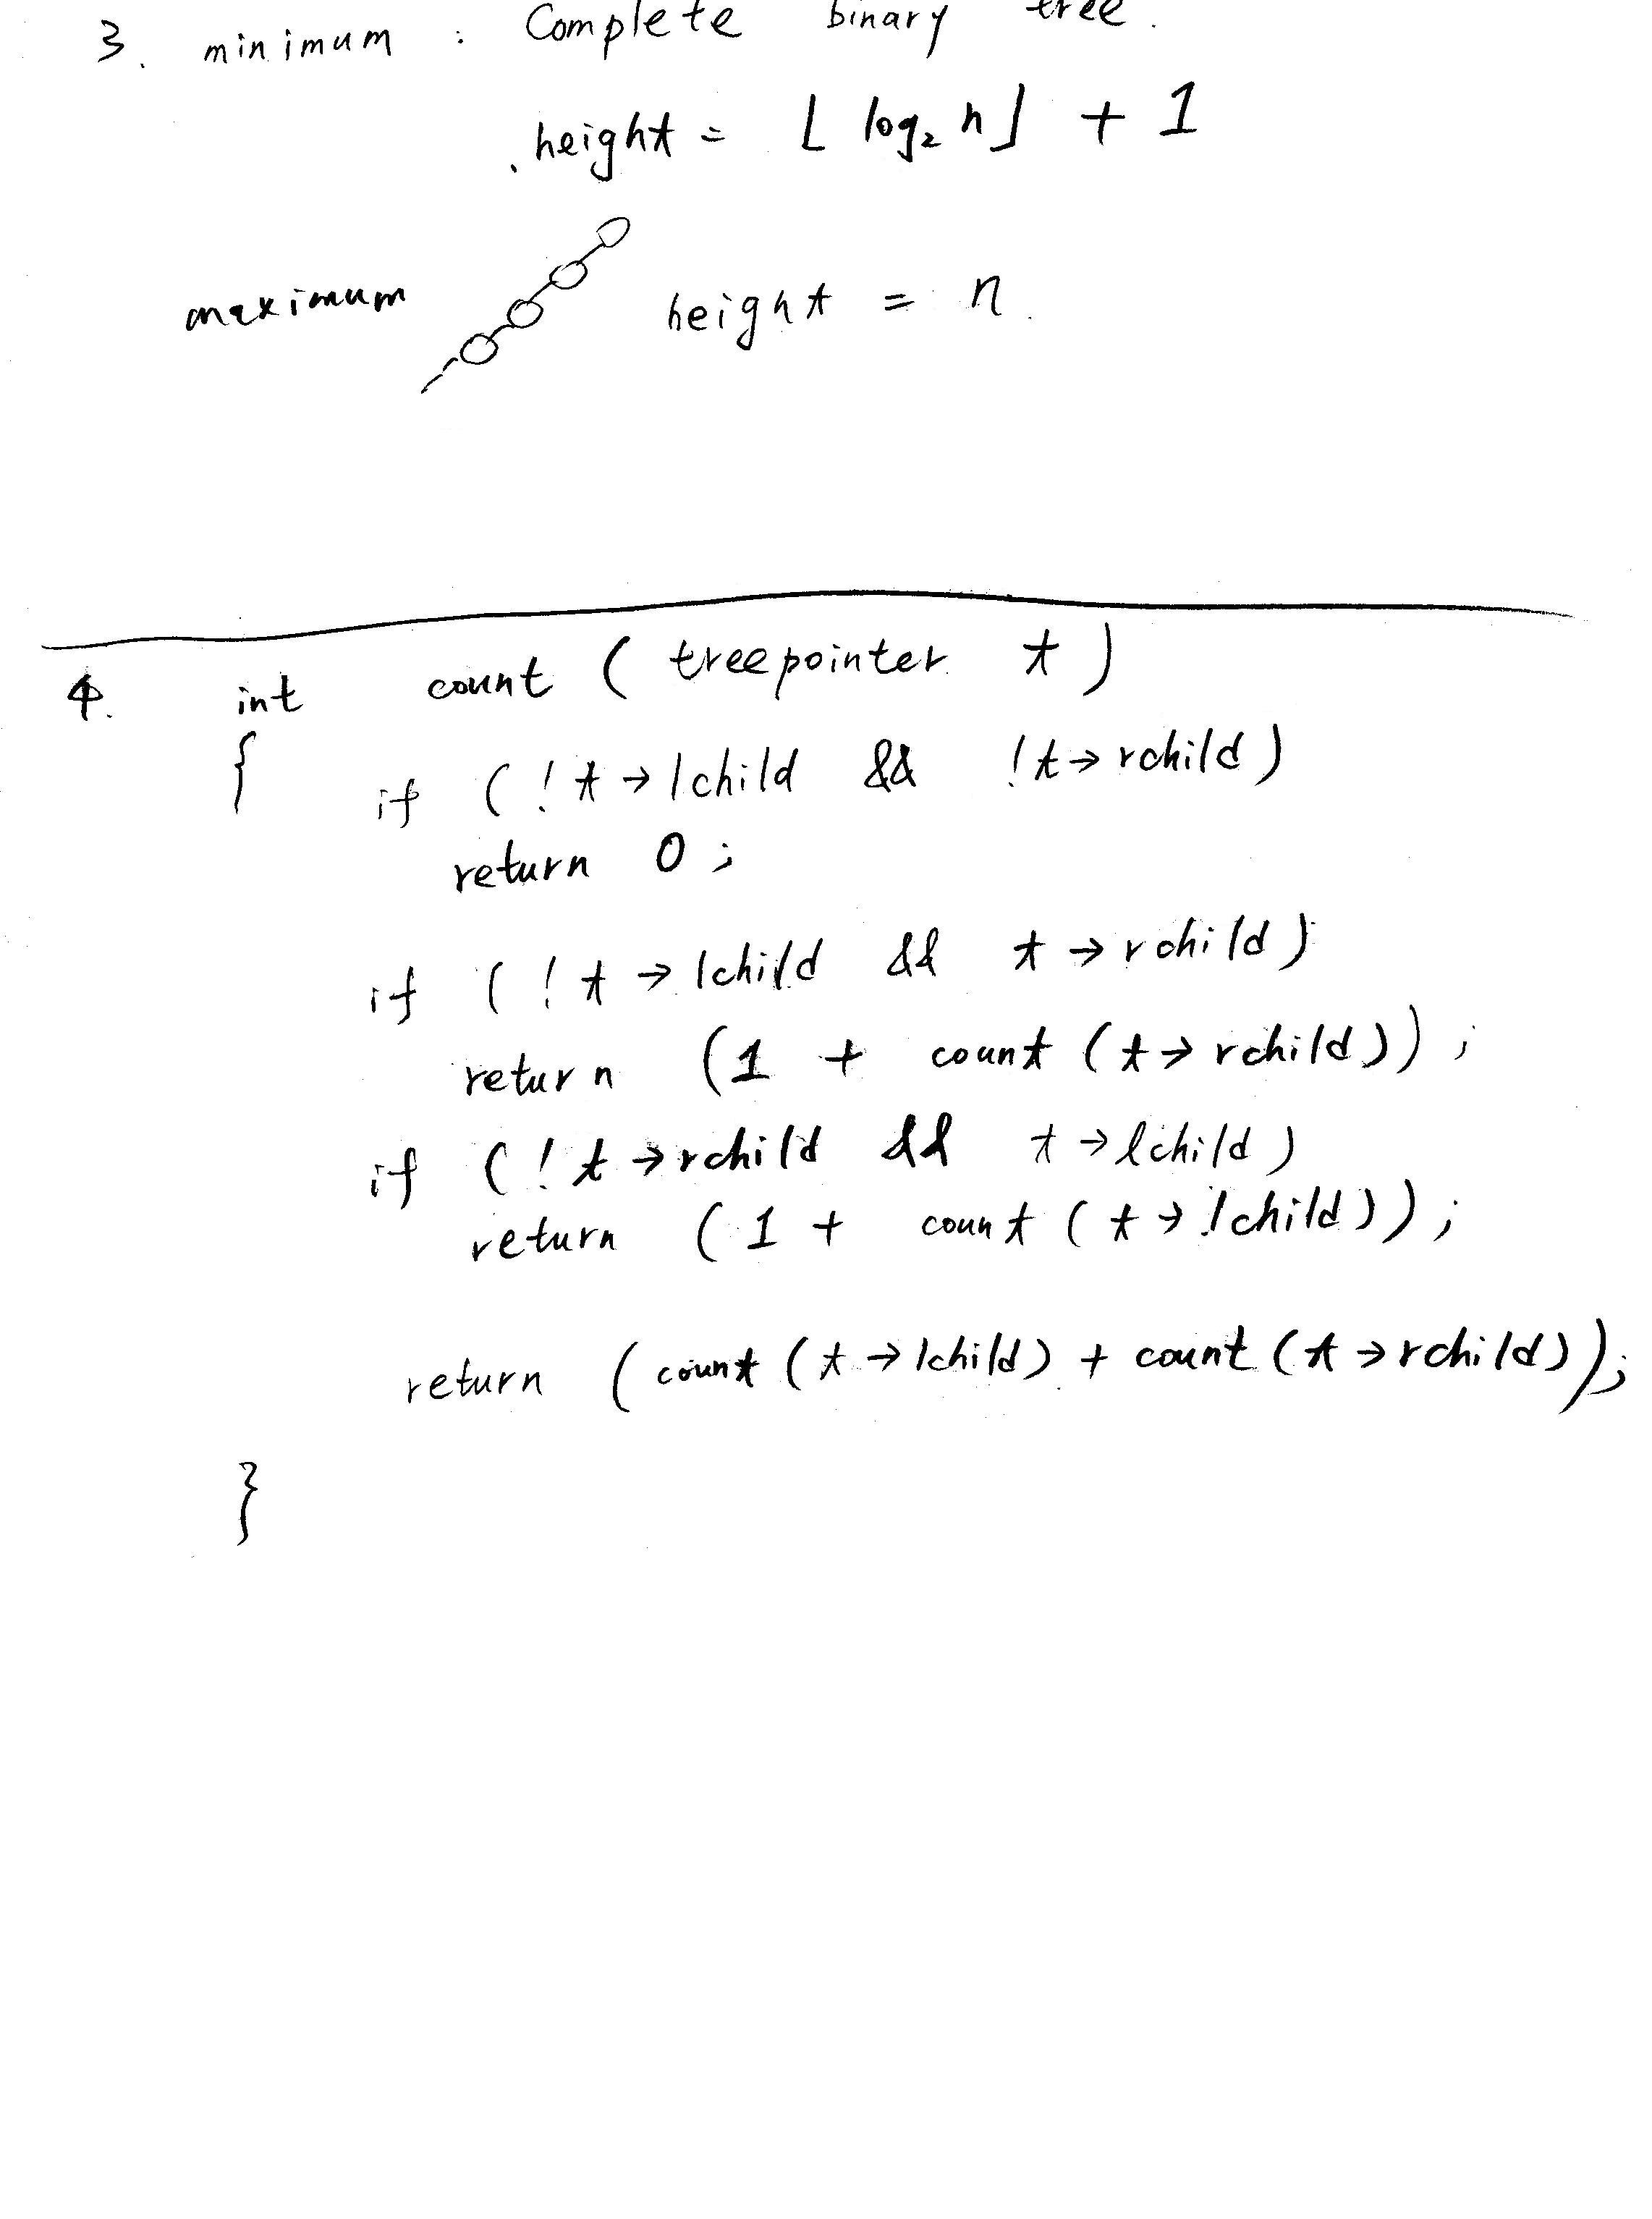 3. minimum : Complete binary tree.
height = ⌊ log₂ n ⌋ + 1
maximum height = n.
4. int count ( treepointer t )
{
if ( ! t → lchild && ! t → rchild )
return 0 ;
if ( ! t → lchild && t → rchild )
return ( 1 + count ( t → rchild ) ) ;
if ( ! t → rchild && t → lchild )
return ( 1 + count ( t → lchild ) ) ;
return ( count ( t → lchild ) + count ( t → rchild ) ) ;
}